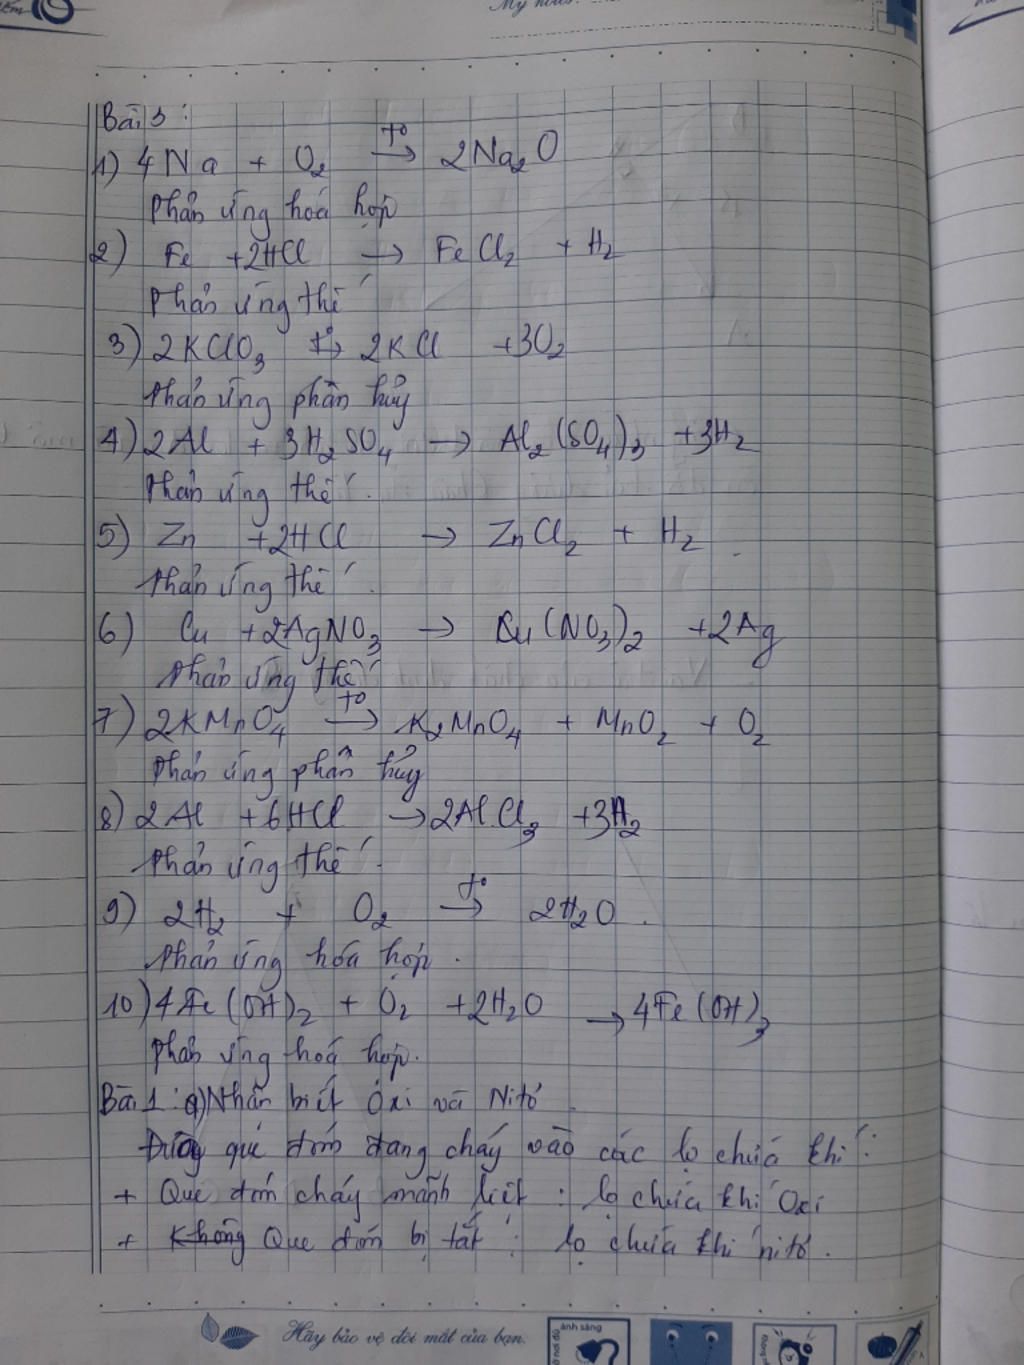 Bài 3:
1) 4Na + O₂ →(t°) 2Na₂O
Phản ứng hoá hợp
2) Fe + 2HCl → FeCl₂ + H₂
Phản ứng thế
3) 2KClO₃ →(t°) 2KCl + 3O₂
Phản ứng phân hủy
4) 2Al + 3H₂SO₄ → Al₂(SO₄)₃ + 3H₂
Phản ứng thế.
5) Zn + 2HCl → ZnCl₂ + H₂
Phản ứng thế.
6) Cu + 2AgNO₃ → Cu(NO₃)₂ + 2Ag
Phản ứng thế
7) 2KMnO₄ →(t°) K₂MnO₄ + MnO₂ + O₂
Phản ứng phân hủy
8) 2Al + 6HCl → 2AlCl₃ + 3H₂
Phản ứng thế.
9) 2H₂ + O₂ →(t°) 2H₂O.
Phản ứng hóa hợp.
10) 4Fe(OH)₂ + O₂ + 2H₂O → 4Fe(OH)₃
Phản ứng hoá hợp.
Bài 1: a) Nhận biết Oxi và Nitơ.
Đưa que đóm đang cháy vào các lọ chứa khí:
+ Que đóm cháy mãnh liệt: lọ chứa khí Oxi
+ Không Que đóm bị tắt: lọ chứa khí nitơ.
Hãy bảo vệ đôi mắt của bạn.
ánh sáng